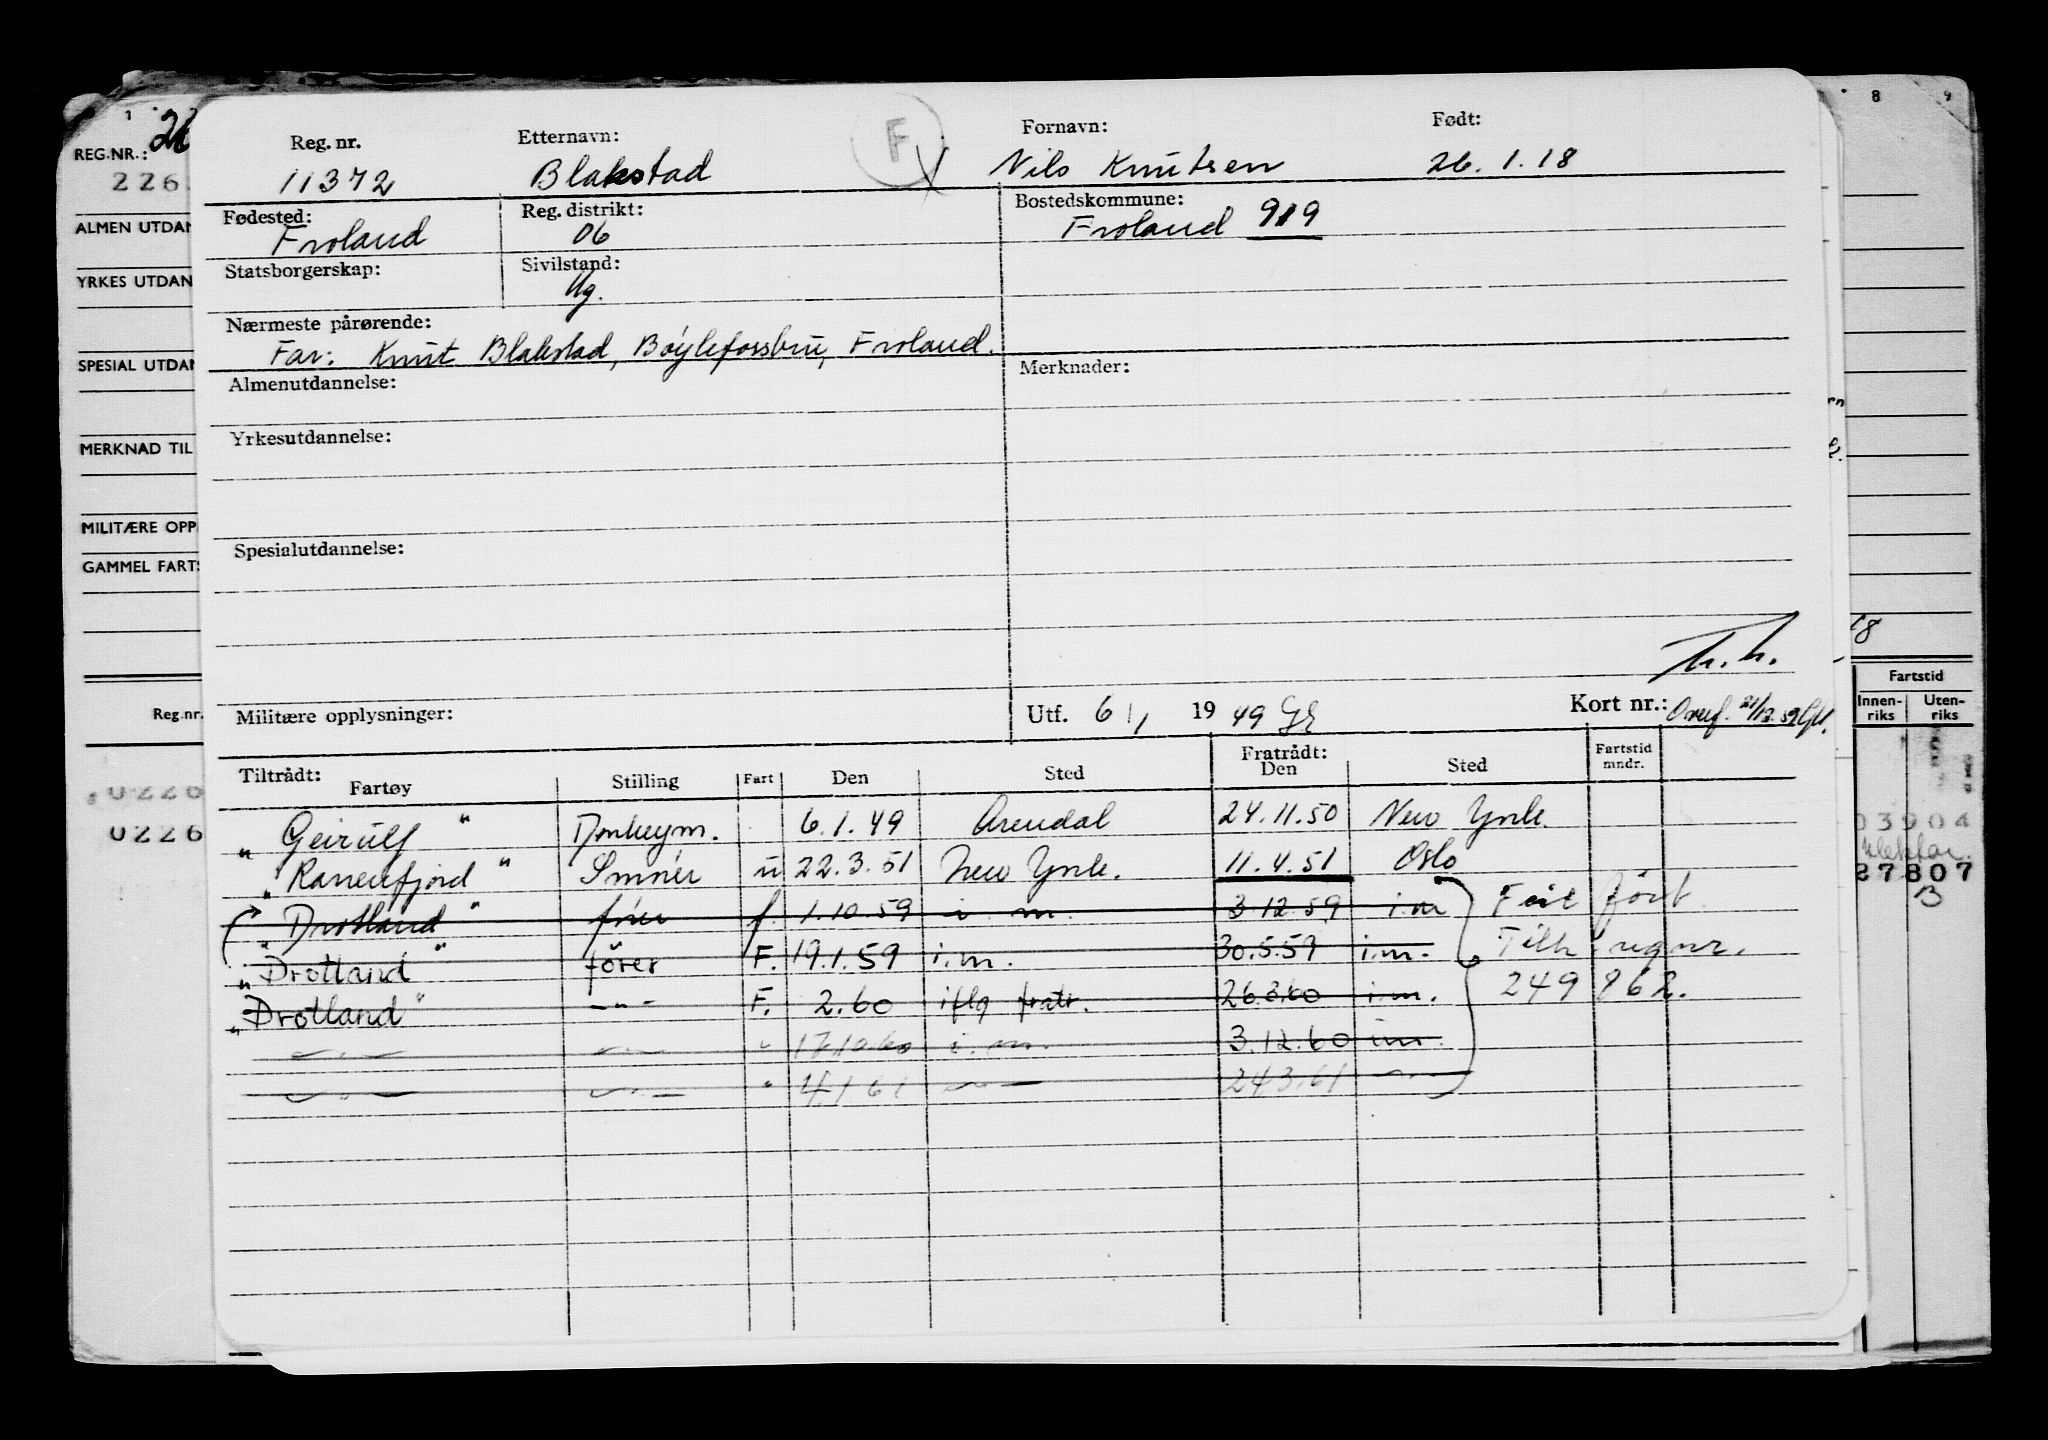 REG.NR.:
226
ALMEN UTDAN
YRKES UTDAN
SPESIAL UTDAN
MERKNAD TIL
MILITÆRE OPP
GAMMEL FARTS
Reg.nr.
0226
0226
Reg. nr. Etternavn: F Fornavn: Født:
11372 Blakstad Nils Knutsen 26.1.18
Fødested: Reg. distrikt: Bostedskommune:
Froland 06 Froland 919
Statsborgerskap: Sivilstand:
Ug.
Nærmeste pårørende:
Far: Knut Blakstad, Bøylefossbru, Froland.
Almenutdannelse: Merknader:
Yrkesutdannelse:
Spesialutdannelse:
Militære opplysninger: Utf. 6/1 1949 Kort nr.: Overf.
Tiltrådt: Fratrådt:
Fartøy Stilling Fart Den Sted Den Sted Fartstid mndr.
"Geirulf" Donkeym. 6.1.49 Arendal 24.11.50 New York.
"Ranenfjord" Smører u 22.3.51 New York. 11.4.51 Oslo
"Drotland" fører f. 1.10.59 i.m. 3.12.59 i.m Feil ført
"Drotland" fører F. 19.1.59 i.m. 30.5.59 i.m. Tilh. regnr.
"Drotland" -"- F. 2.60 iflg fratr. 26.3.60 i.m. 249862.
-"- -"- " 17.10.60 i.m. 3.12.60 i.m.
-"- -"- " 4.1.61 -"- 24.3.61 -"-
8 9
18
Fartstid
Innen-riks Uten-riks
03904
27807
3